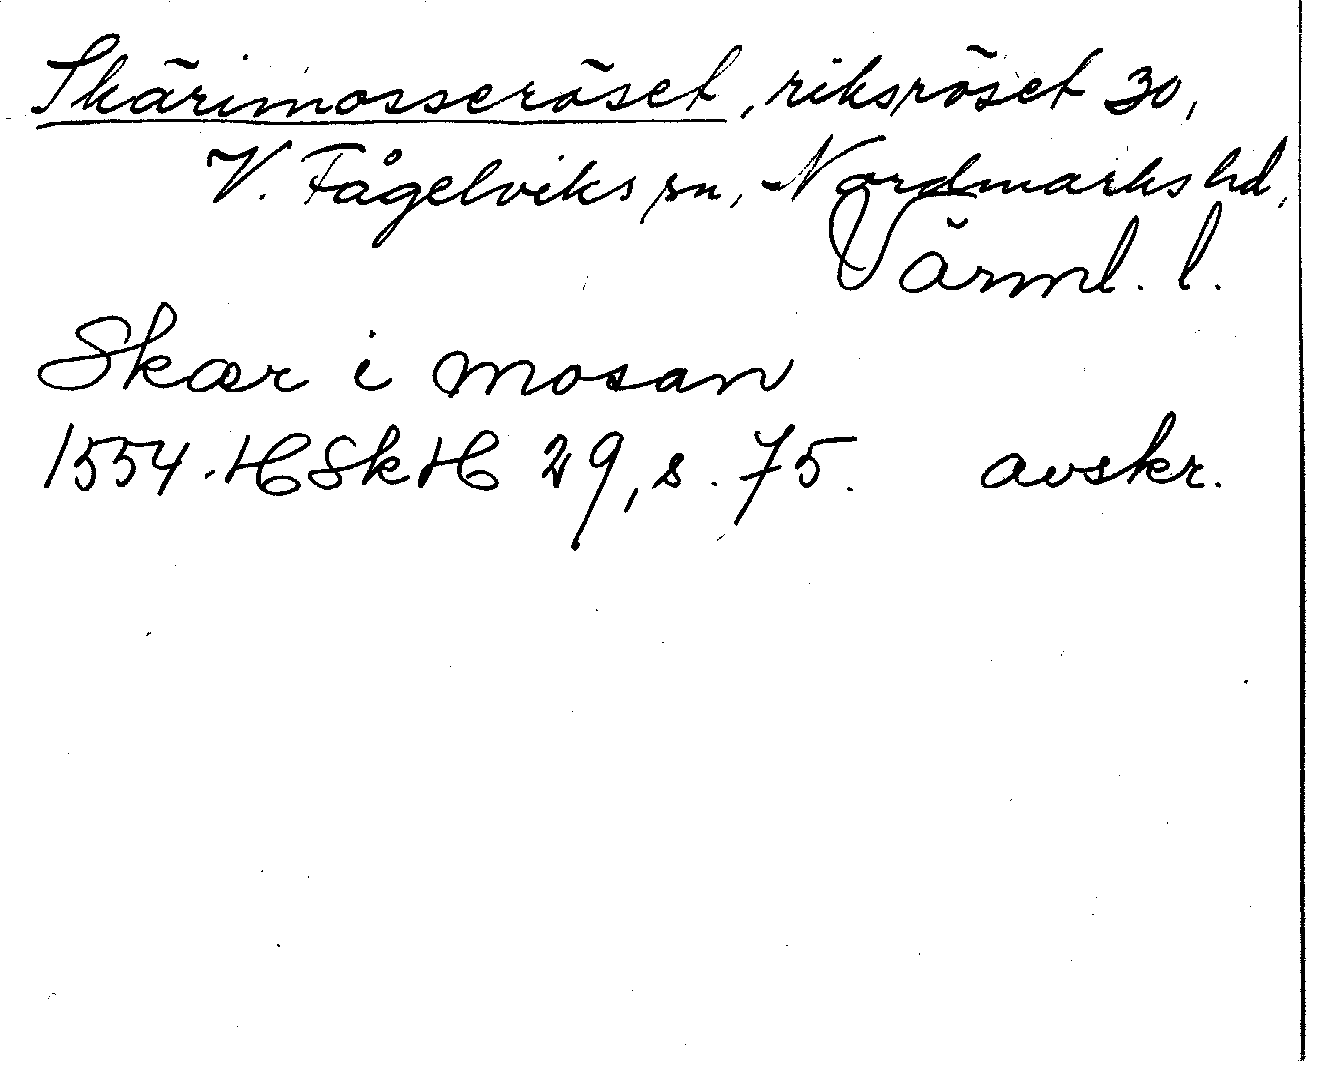 Skärimosseröset, riksröset 30,
V. Fågelviks sn, Nordmarks hd,
Värml. l.
Skær i mosan
1554. HSkH 29, s. 75. avskr.